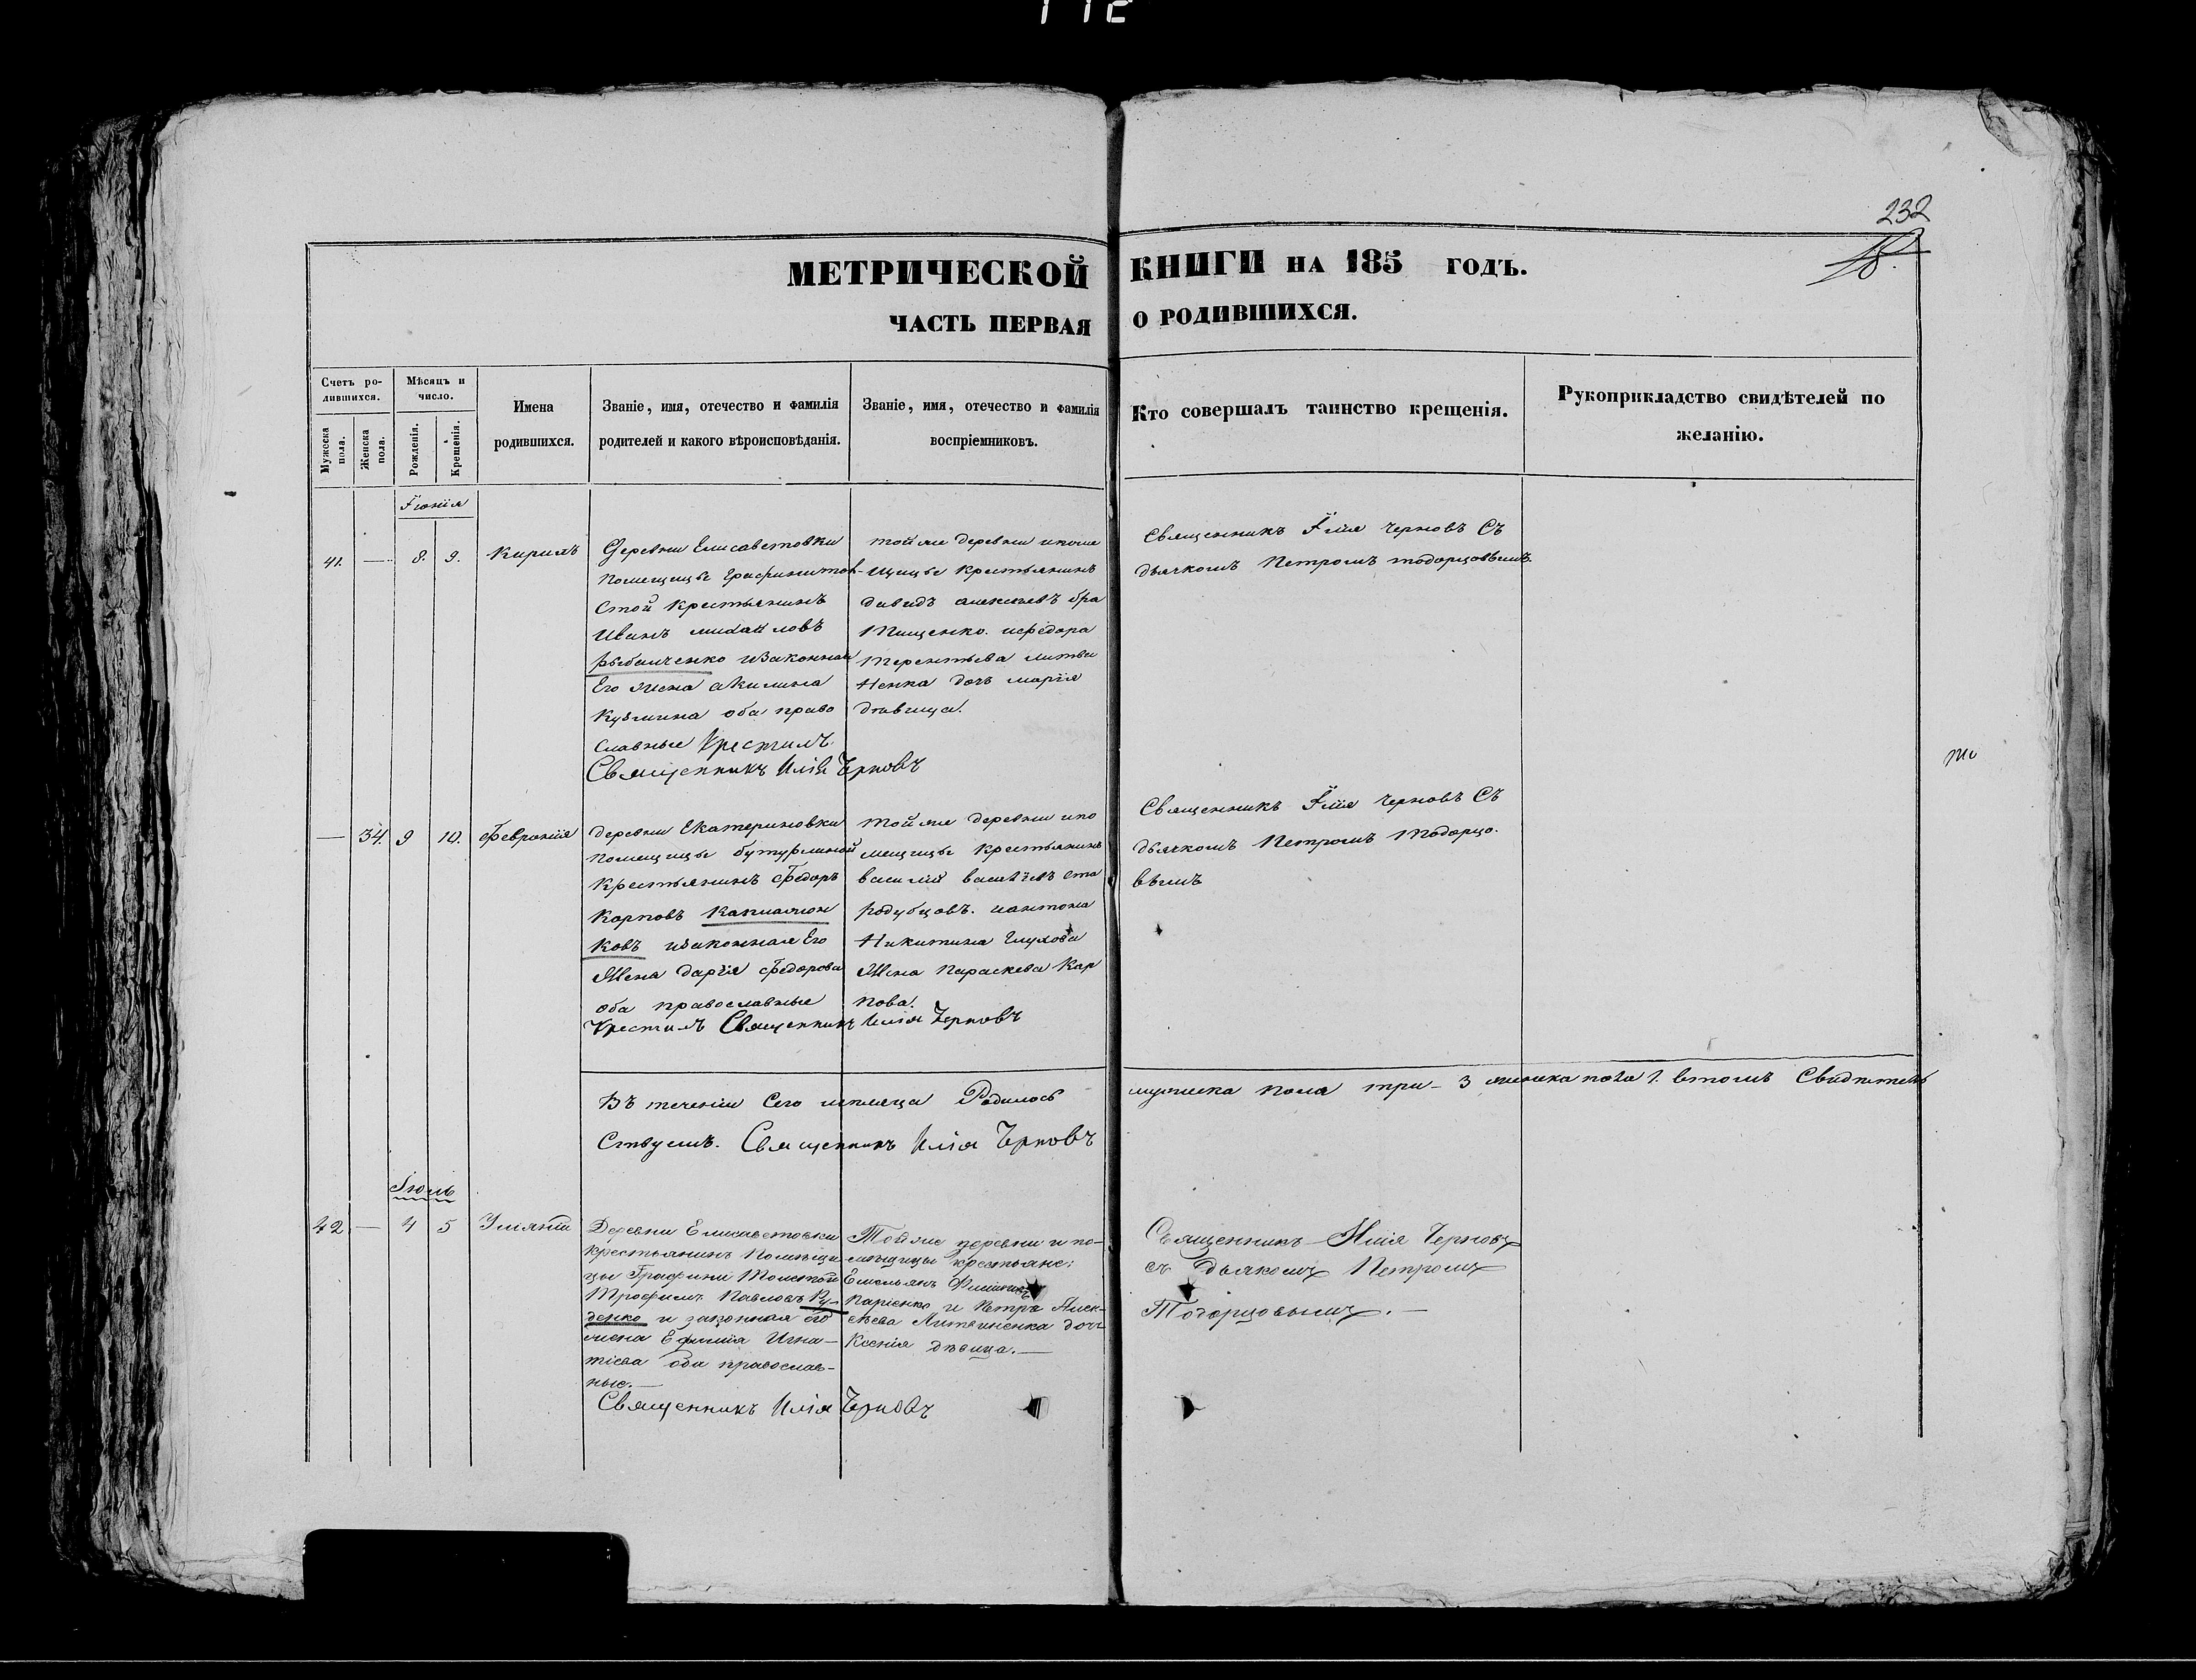 232
18.
МЕТРИЧЕСКОЙ КНИГИ НА 185 ГОДЪ.
ЧАСТЬ ПЕРВАЯ О РОДИВШИХСЯ.
Счетъ ро-
дившихся.
Мужеска пола.
Женска пола.
Мѣсяцъ и
число.
Рожденія.
Крещенія.
Имена
родившихся.
Званіе, имя, отечество и фамилія
родителей и какого вѣроисповѣданія.
Званіе, имя, отечество и фамилія
воспріемниковъ.
Кто совершалъ таинство крещенія.
Рукоприкладство свидѣтелей по
желанію.
Іюнія
41. — 8. 9. Кирилъ
Деревни Елисаветовки
Помещицы Графини тол-
стой крестьянинъ
Иванъ михайловъ
рыбалченко изаконная
Его жена акилина
Кузмина оба право
славные Крестилъ
Священникъ Илія Чрновъ
той же деревни ипоме
щицы крестьянинъ
давидъ алексѣевъ бра
тищенко. ифедора
терентьева литви
ненка дочь марія
дѣвица.
Священникъ Ілія Черновъ Съ
дьячкомъ Петромъ тодорцовымъ.
— 34. 9 10. Февронія
деревни Екатериновки
помещицы бутурлиной
крестьянинъ Федоръ
карповъ
ковъ изаконная Его
Жена дарія федорова
оба православные
Крестилъ Священникъ Илія Черновъ
той же деревни ипо
мещицы крестьянинъ
василій васил᾽евъ ста
родубцовъ. иантона
Никитина Глухова
Жена параскева Кар
пова.
Священникъ Ілія Черновъ Съ
дьячкомъ Петромъ Тодорцо.
вымъ
Въ теченіи Сего месяца Родилось мужеска пола три- 3 женска пола 1. втомъ Свидетель
Ствуемъ. Священникъ Илія Чрновъ
то
Іюль
42 — 4 5
Деревни Елисаветовки
крестьянинъ Помѣщи
цы Графини Толстой
Трофимъ Павловъ
денко и законная его
жена Ефимія Игна-
тіева оба православ-
ные.—
Священникъ Илія Чрновъ
Тойже деревни и по-
мѣщицы крестьяне:
Емельянъ
и Петра Алек-
сѣева Литвиненка дочь
Ксенія дѣвица.—
Священникъ Илія Черновъ
съ Дьякомъ Петромъ
Тодорцовымъ.—